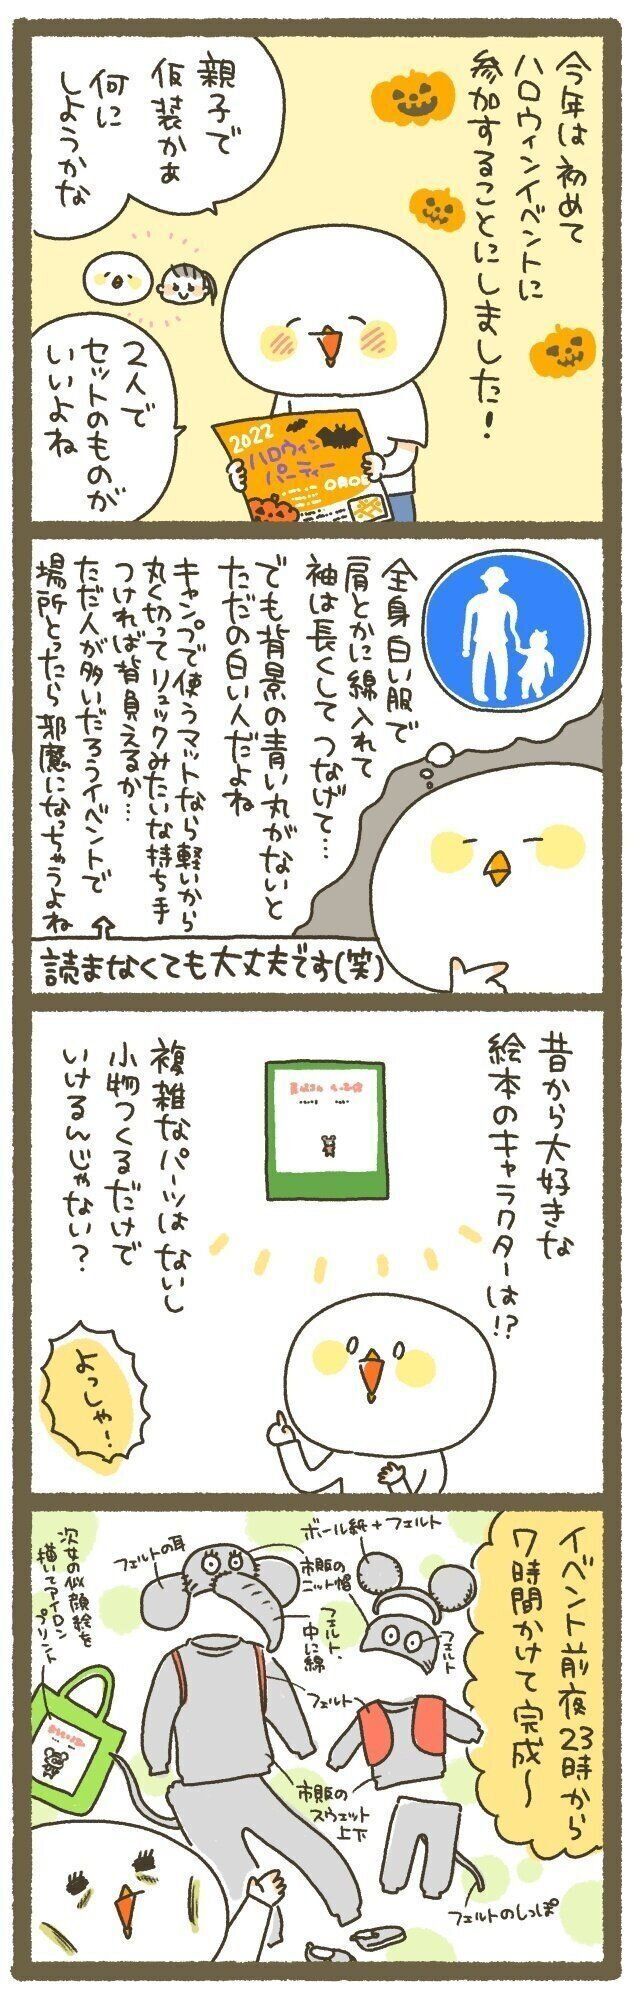 今年は初めて
ハロウィンイベントに
参加することにしました!
親子で
仮装かぁ
何に
しようかな
2人で
セットのものが
いいよね
2022
ハロウィン
パーティー
全身白い服で
肩とかに綿入れて
袖は長くしてつなげて…
でも背景の青い丸がないと
ただの白い人だよね
キャンプで使うマットなら軽いから
丸く切ってリュックみたいな持ち手
つければ背負えるか…
ただ人が多いだろうイベントで
場所とったら邪魔になっちゃうよね
読まなくても大丈夫です(笑)
昔から大好きな
絵本のキャラクターは!?
複雑なパーツはないし
小物つくるだけで
いけるんじゃない?
よっしゃー!
イベント前夜23時から
7時間かけて完成〜
ボール紙+フェルト
市販の
ニット帽
フェルト
フェルトの耳
フェルト、
中に綿
フェルト
市販の
スウェット
上下
フェルトのしっぽ
次女の似顔絵を
描いてアイロン
プリント